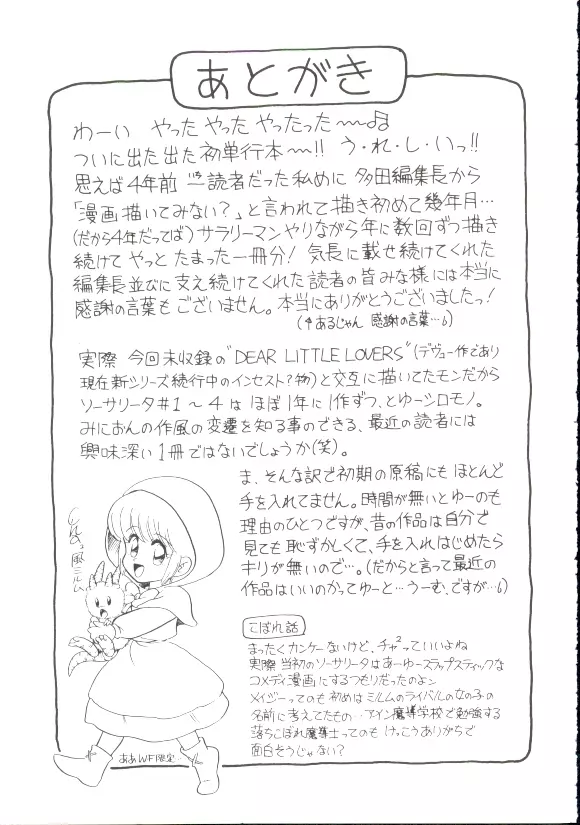 あとがき
わーい やった やった やったった〜〜♫
ついに出た出た初単行本〜〜!! う・れ・し・いっ!!
思えば4年前 一読者だった私めに 多田編集長から
「漫画描いてみない?」と言われて描き初めて幾年月…
(だから4年だってば) サラリーマンやりながら年に数回ずつ描き
続けて やっと たまった一冊分! 気長に載せ続けてくれた
編集長並びに支え続けてくれた読者の皆みな様には本当に
感謝の言葉もございません。本当にありがとうございましたっ!
(↑あるじゃん 感謝の言葉…6)
実際 今回未収録の"DEAR LITTLE LOVERS"(デヴュー作であり
現在新シリーズ続行中のインセスト?物)と交互に描いてたモンだから
ソーサリータ#1〜4は ほぼ1年に1作ずつ、とゆーシロモノ。
みにおんの作風の変遷を知る事のできる、最近の読者には
興味深い1冊ではないでしょうか(笑)。
ま、そんな訳で初期の原稿にもほとんど
手を入れてません。時間が無いとゆーのも
理由のひとつですが、昔の作品は自分で
見ても恥ずかしくて、手を入れはじめたら
キリが無いので…。(だからと言って最近の
作品はいいのかってゆーと…うーむ、ですが…6)
風ミルム
こぼれ話
まったくカンケーないけど、チャ²っていいよね
実際 当初のソーサリータはあーゆースラップスティックな
コメディ漫画にするつもりだったのよン
メイジーってのも初めはミルムのライバルの女の子の
名前に考えてたもの…アイン魔導学校で勉強する
落ちこぼれ魔導士ってのも けっこうありがちで
面白そうじゃない?
ああWF限定…